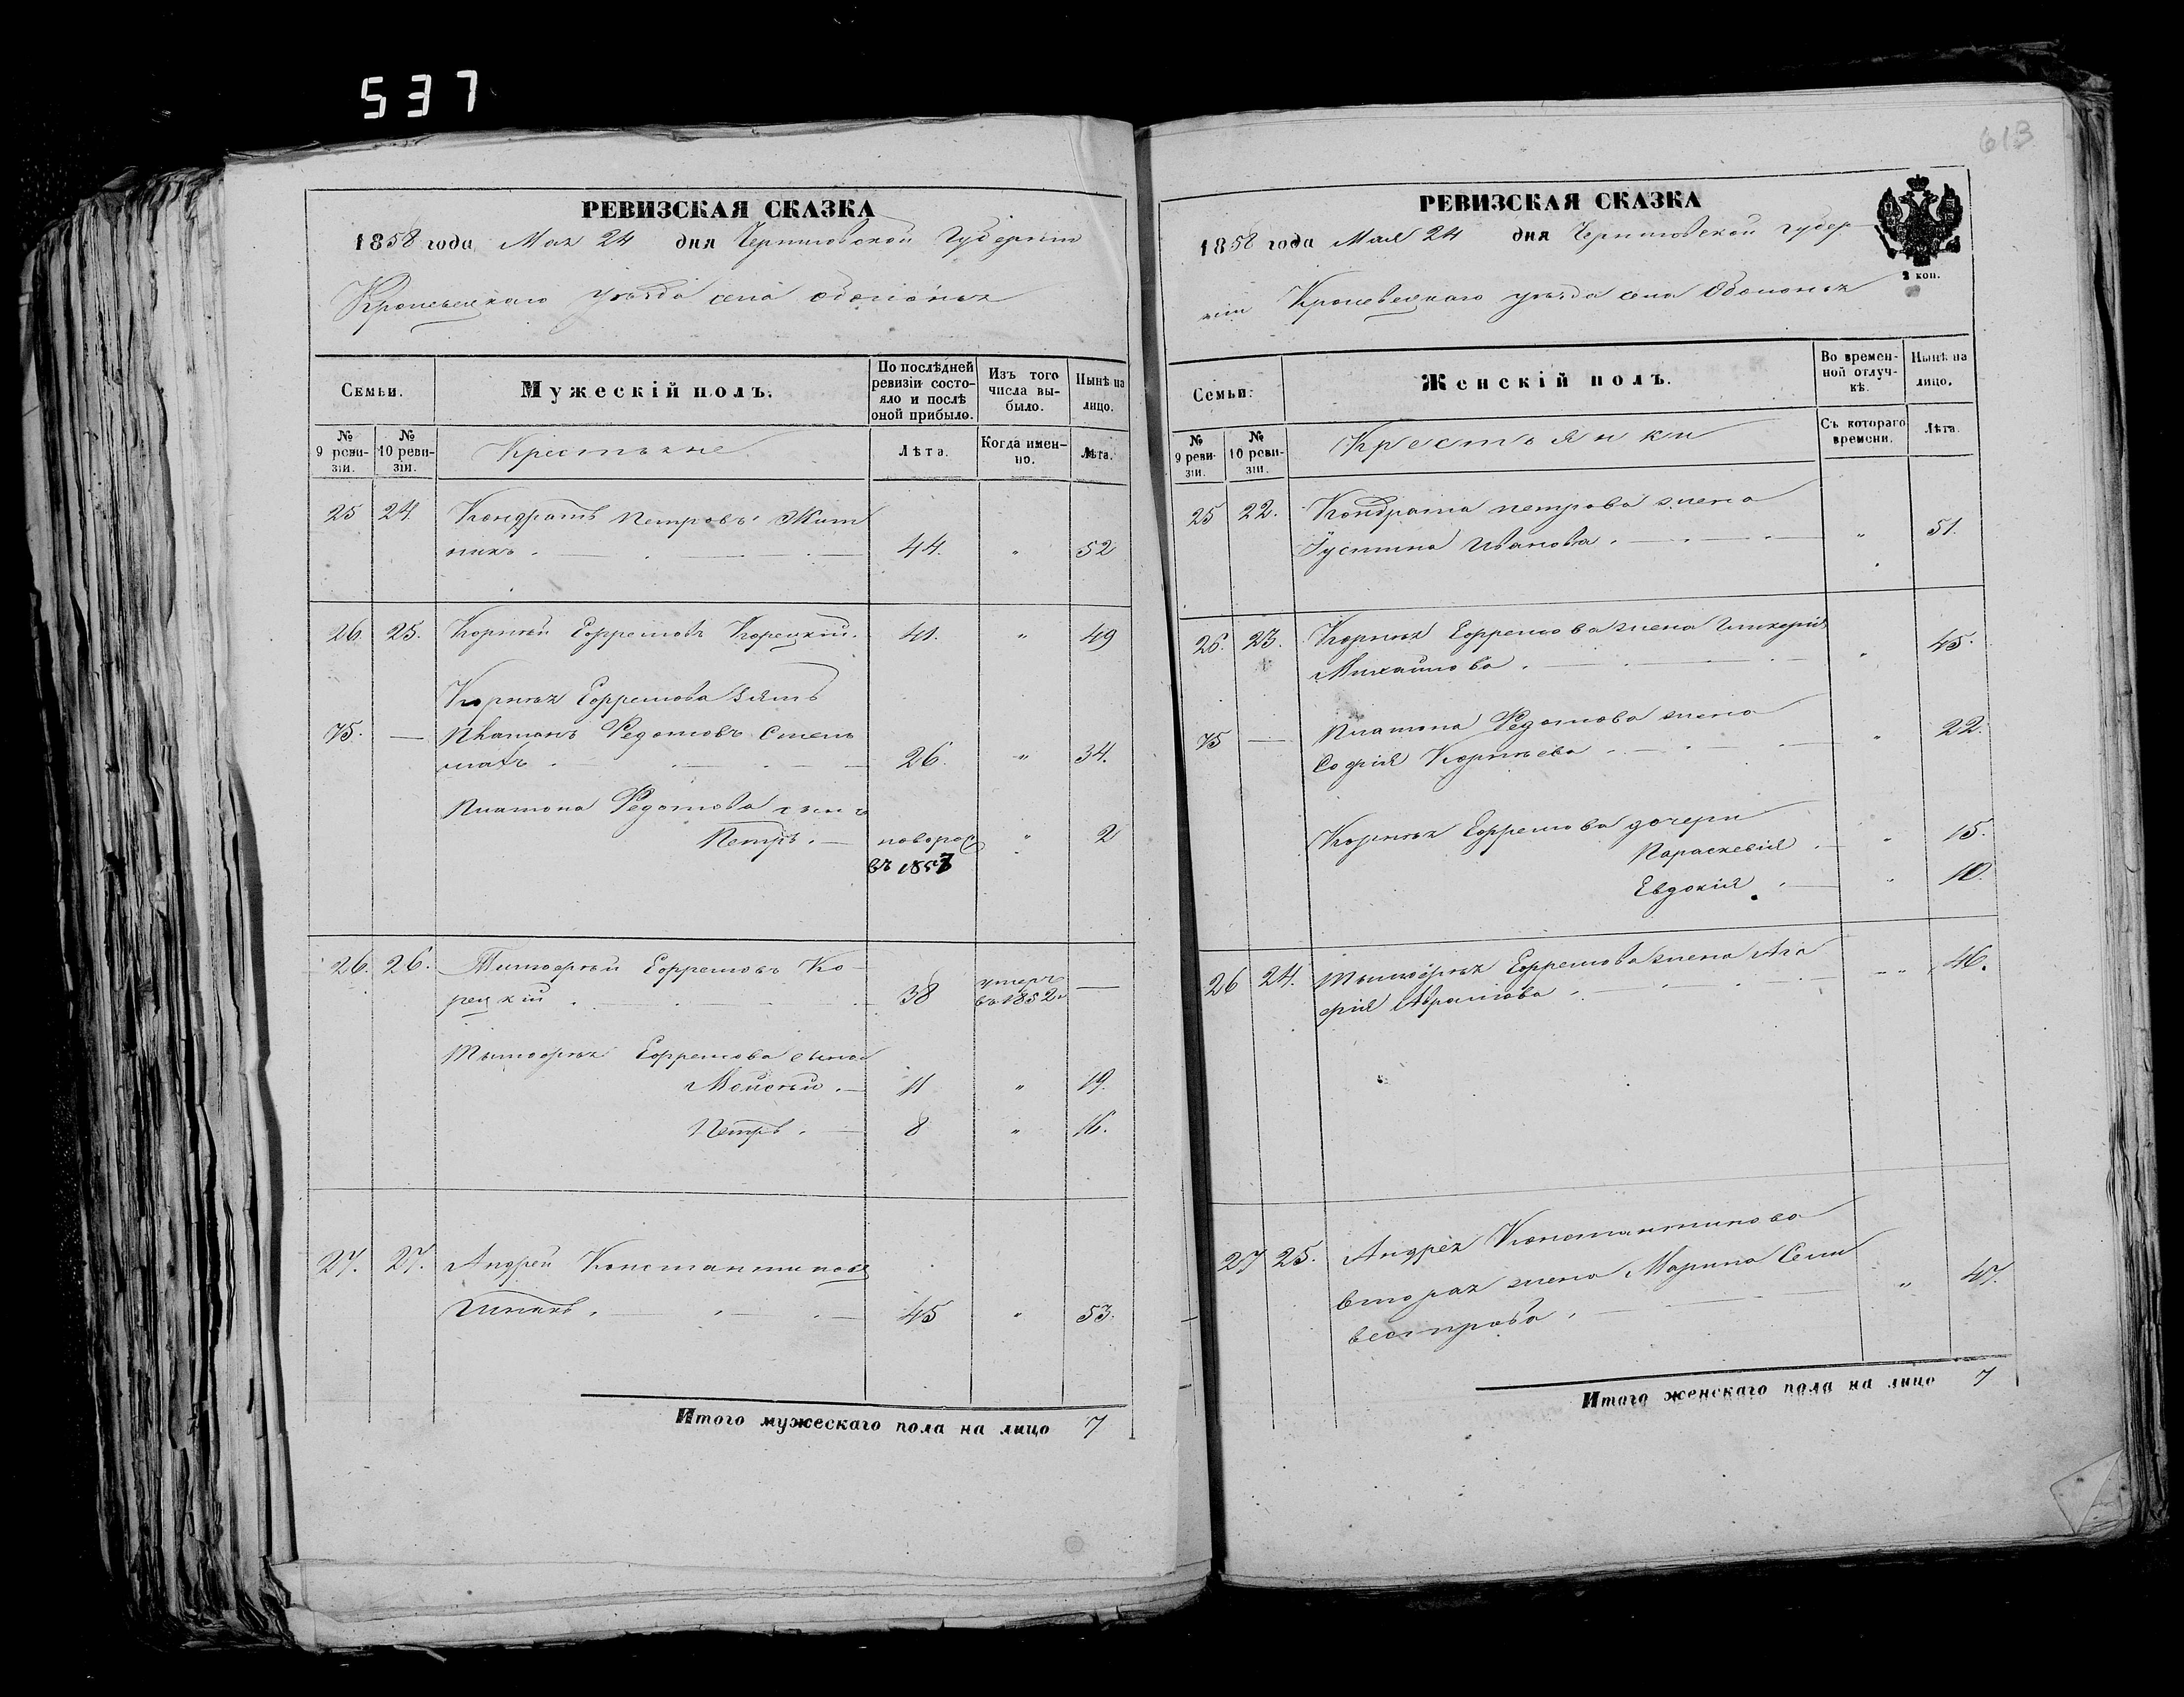 537
613
РЕВИЗСКАЯ СКАЗКА
1858 года Мая 24 дня Черниговской Губерніи
Кролевецкаго уѣзда села Оболонья
Семьи.
Мужескій полъ.
По послѣдней ревизіи состояло и послѣ оной прибыло.
Изъ того числа выбыло.
Нынѣ на лицо.
№ 9 ревизіи.
№ 10 ревизіи.
Крестьяне
Лѣта.
Когда именно.
Лѣта.
25 24. Кондратъ Петровъ Жит
никъ. 44. " 52
26. 25. Корнѣй Ефремовъ Корецкій. 41. " 49
Корнѣя Ефремова зять
75. — Платонъ Федотовъ
26. " 34.
Платона Федотова сынъ
Петръ. — новорож " 2
въ 1857
26. 26. Тимофѣй Ефремовъ Ко-
рецкій 38 умеръ въ 1852 —
Тимофѣя Ефремова сыны
Мойсѣй. — 11 " 19.
Петръ. — 8 " 16.
27. 27. Андрей Константиновъ
45 " 53.
Итого мужескаго пола на лицо 7
РЕВИЗСКАЯ СКАЗКА
2 коп.
1858 года Мая 24 дня Черниговской губер
ніи Кролевецкаго уѣзда села Оболонья
Семьи.
Женскій полъ.
Во временной отлучкѣ.
Нынѣ на лицо.
№ 9 ревизіи.
№ 10 ревизіи.
Крестьянки
Съ котораго времени.
Лѣта.
25 22. Кондрата Петрова жена
Іустина Иванова. " 51.
26. 23. Корнѣя Ефремова жена Гликерія
Михайлова. " 45.
75 — Платона Федотова жена
Софія Корнѣева " 22.
Корнѣя Ефремова дочери
Параскевія " 15.
Евдокія " 10.
26 24. Тимофѣя Ефремова жена Ага
фія Аврамова. " 46.
27 25. Андрея Константинова
вторая жена Марина Сели
вестрова. " 47.
Итого женскаго пола на лицо 7